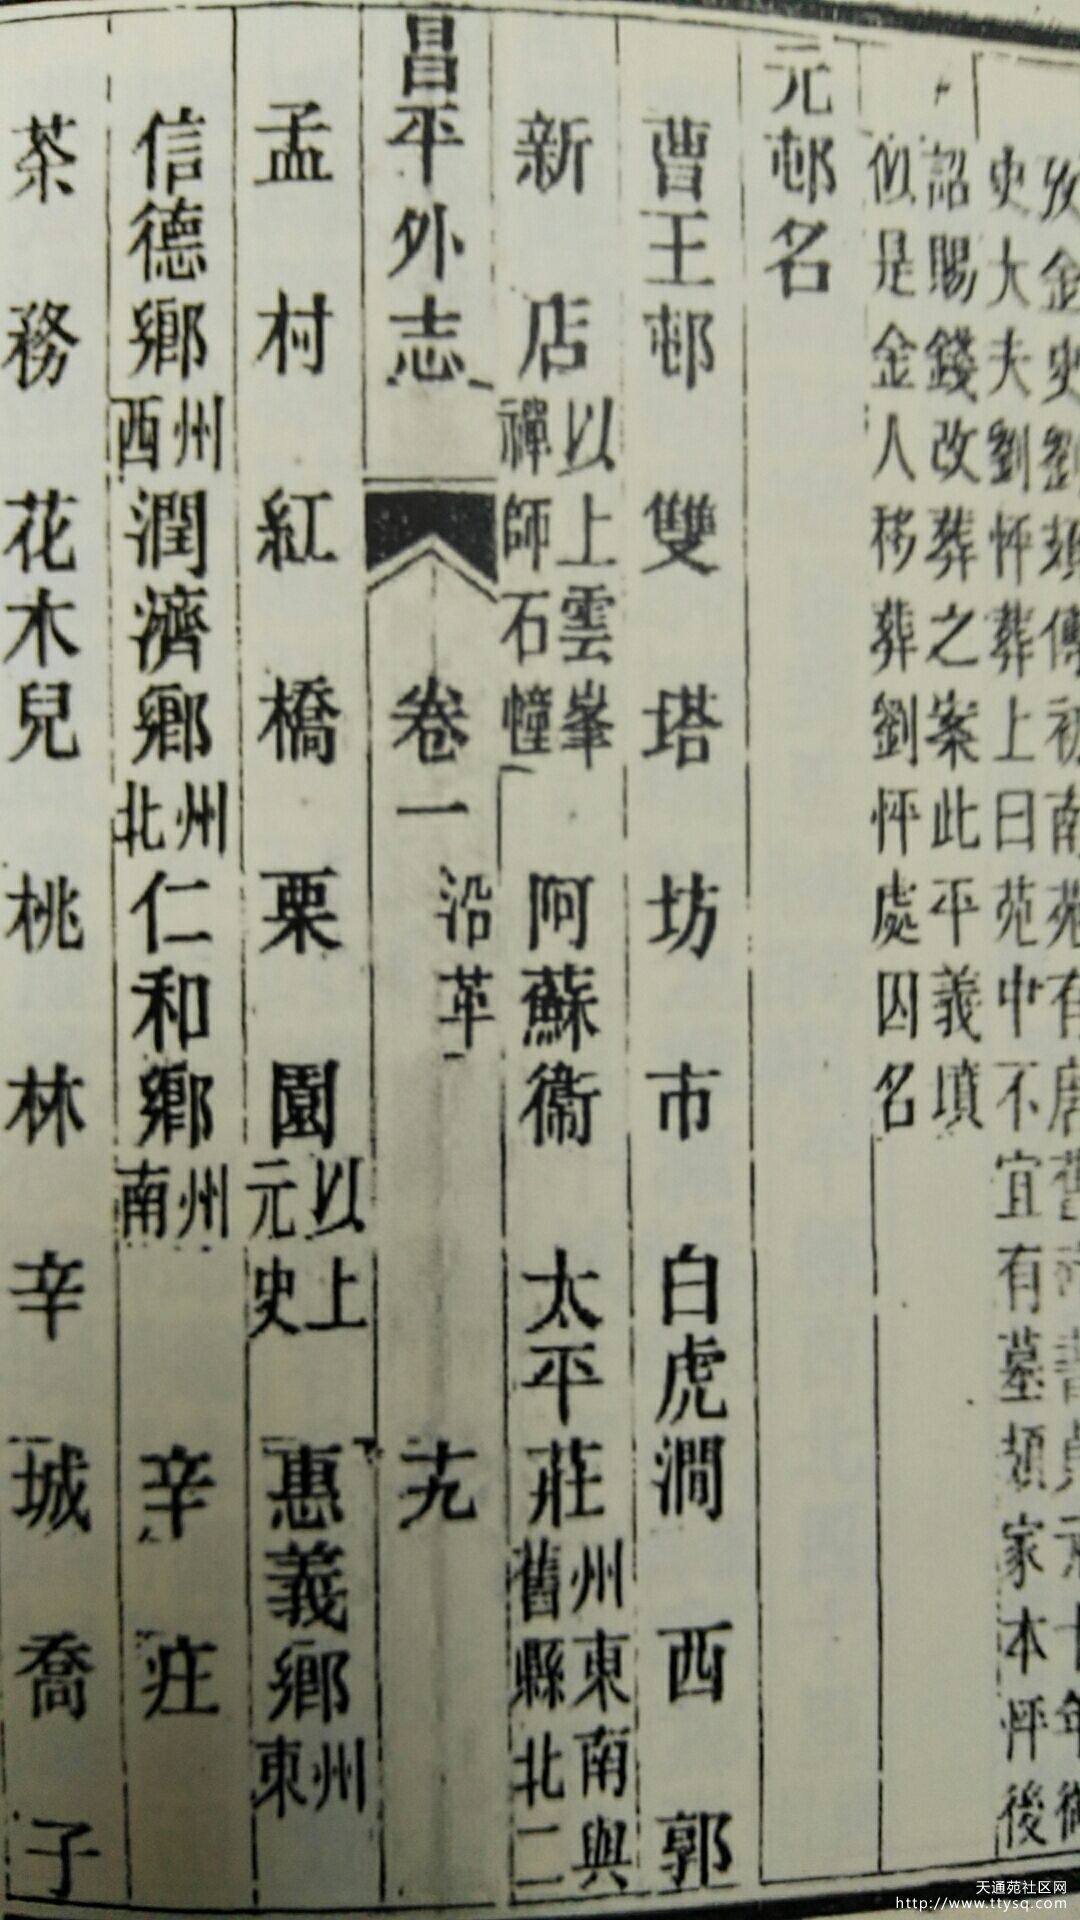 攷金史劉頍傳初南苑有唐舊碑書貞元十年御
史大夫劉怦葬上曰苑中不宜有墓頍家本怦後
詔賜錢改葬之案此平義墳
似是金人移葬劉怦處因名
元邨名
曹王邨 雙塔 坊市 白虎澗 西郭
新店 以上雲峯禪師石幢 阿蘇衞 太平莊 州東南與舊縣北二
昌平外志 卷一 沿革 十九
孟村 紅橋 栗園 以上元史 惠義鄉 州東
信德鄉 州西 潤濟鄉 州北 仁和鄉 州南 辛庄
茶務 花木兒 桃林 辛城 喬子
天通苑社区网
http://www.ttysq.com